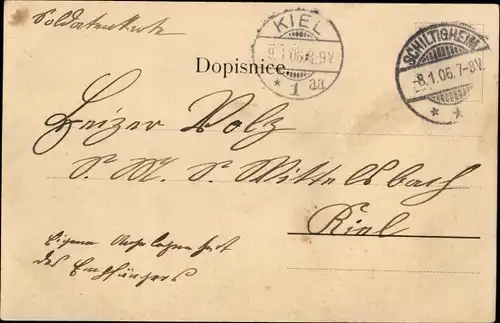 Soldatenkarte
KIEL
9.1.06. 8-9V.
* 1 aa
SCHILTIGHEIM
-8.1.06. 7-8V.
* *
Dopisnice
Heizer Volz
S. M. S. Wittelsbach
Kiel
Eigene Angelegenheit
des Empfängers